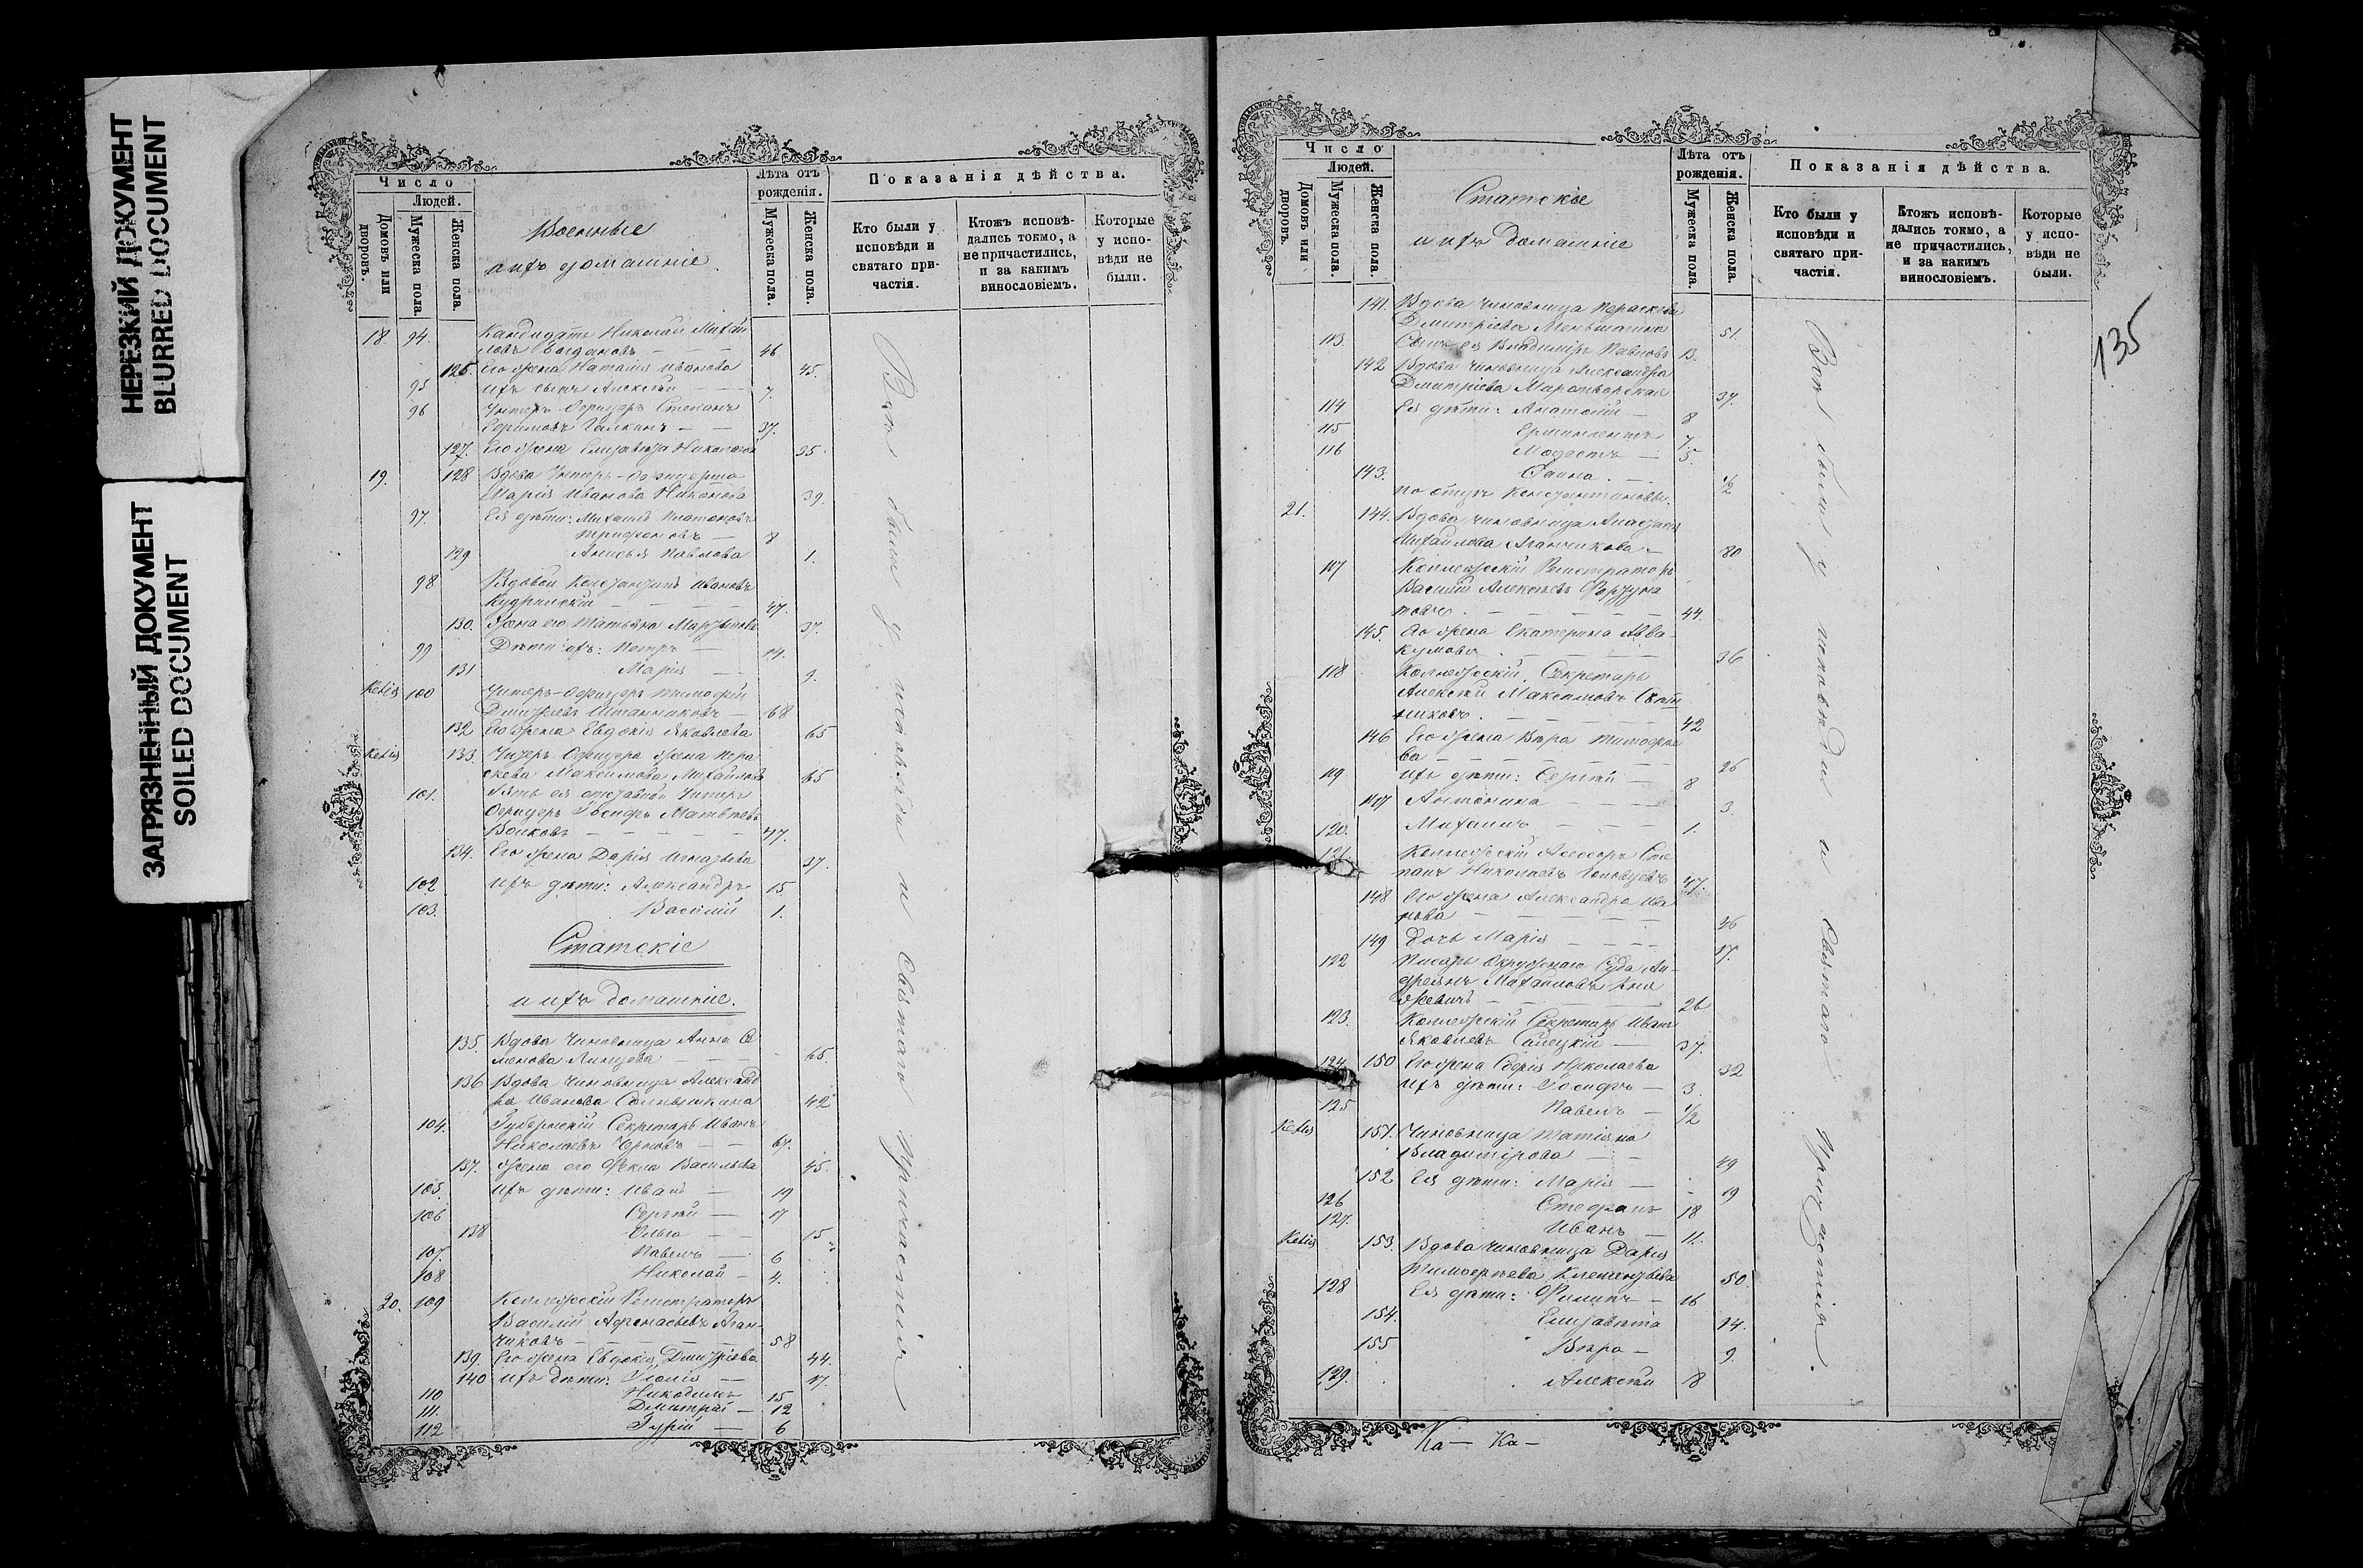 НЕРЕЗКИЙ ДОКУМЕНТ
BLURRED DOCUMENT
ЗАГРЯЗНЕННЫЙ ДОКУМЕНТ
SOILED DOCUMENT
Число
Людей.
Домовъ или дворовъ.
Мужеска пола.
Женска пола.
Военные
и ихъ домашніе.
Лѣта отъ рожденія.
Мужеска пола.
Женска пола.
Показанія дѣйства.
Кто были у исповѣди и святаго причастія.
Ктожъ исповѣдались токмо, а не причастились, и за какимъ винословіемъ.
Которые у исповѣди не были.
18 94. Кандидатъ Николай Михай
ловъ Богдановъ — 46
126. Его жена Наталія Иванова 45.
95 Ихъ сынъ Алексѣй — 7.
96 Унтеръ Офицеръ Степанъ
Ефимовъ Галкинъ — — 37.
127. Его жена Елизавета Николаева 35
19. 128 Вдова Унтеръ-Офицерша
Марія Иванова Никонова 39.
97. Ея дѣти: Михаилъ Платоновъ
Трифоновъ — 8
129 Анисья Павлова 1.
98 Вдовой Константинъ Ивановъ
47.
130. Жена его Татьяна Мартынова 37.
99 Дѣти ихъ: Петръ — 14.
131 Марія — 9.
100 Унтеръ-Офицеръ Тимофей
Дмитріевъ — 68
132 Его жена Евдокія Яковлева 65
133. Унтеръ Офицера жена Пара
скева Максимова Михайлова 65
101. Зять ея отставной Унтеръ
Офицеръ Іосифъ Матвѣевъ
Волковъ — 47.
134. Его жена Дарія Игнатьева 37.
102 Ихъ дѣти: Александръ 15
103. Василій 1.
Статскіе
и ихъ домашніе.
135. Вдова Чиновница Анна Се
менова 65.
136 Вдова Чиновница Александ
ра Иванова Солнышкина 42
104. Губернскій Секретарь Иванъ
Николаевъ — 67.
137. Жена его Фекла Васильева 45.
105. Ихъ дѣти: Иванъ — 19
106 Сергѣй — 17
138 Ольга — 15
107. Павелъ — 6
108 Николай — 4.
20. 109 Коллежскій Регистраторъ
Василій Афанасьевъ Аган-
чиковъ — 58
139. Его жена Евдокія Дмитріева 44.
140 Ихъ дѣти: Юлія — 17.
110 Никодимъ 15
111. Дмитрій — 12
112 Гурій — 6
Всѣ были у исповѣди и Святаго Причастія
Число
Людей.
Домовъ или дворовъ.
Мужеска пола.
Женска пола.
Статскіе
и ихъ домашніе
Лѣта отъ рожденія.
Мужеска пола.
Женска пола.
Показанія дѣйства.
Кто были у исповѣди и святаго причастія.
Ктожъ исповѣдались токмо, а не причастились, и за какимъ винословіемъ.
Которые у исповѣди не были.
135
141. Вдова чиновница Параскева
Дмитріева Меньшагина 51.
113. Сынъ ея Владиміръ Павловъ 13.
142 Вдова чиновница Александра
Дмитріева Миротворская 37.
114 Ея дѣти: Анатолій — 8
115 7
116 Модестъ — 5.
143. 1/2
по отцѣ Константиновы.
21. 144. Вдова чиновница Анастасія
Михайлова Аганчикова — 80
117 Коллежскій Регистраторъ
Василій Алексѣевъ Фортуна
товъ. — 44.
145. Его жена Екатерина Авва-
кумова — 36
118 Коллежскій Секретарь
Алексѣй Максимовъ
42
146 Его жена Вѣра Тимофѣе
ва — 26
119 Ихъ дѣти: Сергѣй — 8
147 Антонина — 3.
120. Михаилъ — 1.
121 Коллежскій Асессоръ Сте
панъ Николаевъ 47.
148 Его жена Александра Ива
нова — 46
149 Дочь Марія — 17.
122 Писарь Окружнаго Суда Ан-
дреянъ Михайловъ
26
123. Коллежскій Секретарь Иванъ
Яковлевъ — 37.
150 Его жена Софія Николаева 32
124 Ихъ дѣти: Іосифъ — 3.
125 Павелъ — 1/2
151. Чиновница Татіяна
Владимірова — 49
152 Ея дѣти: Марія — 19
126 Стефанъ 18
127. Иванъ — 11.
153. Вдова чиновница Дарія
Тимофеева Клементьева 50.
128 Ея дѣти: Филипъ — 16
154. Елизавета 14.
155 Вѣра — 9
129. Алексѣй 8
Всѣ были у исповѣди и Святаго Причастія.
Ка— Ка—